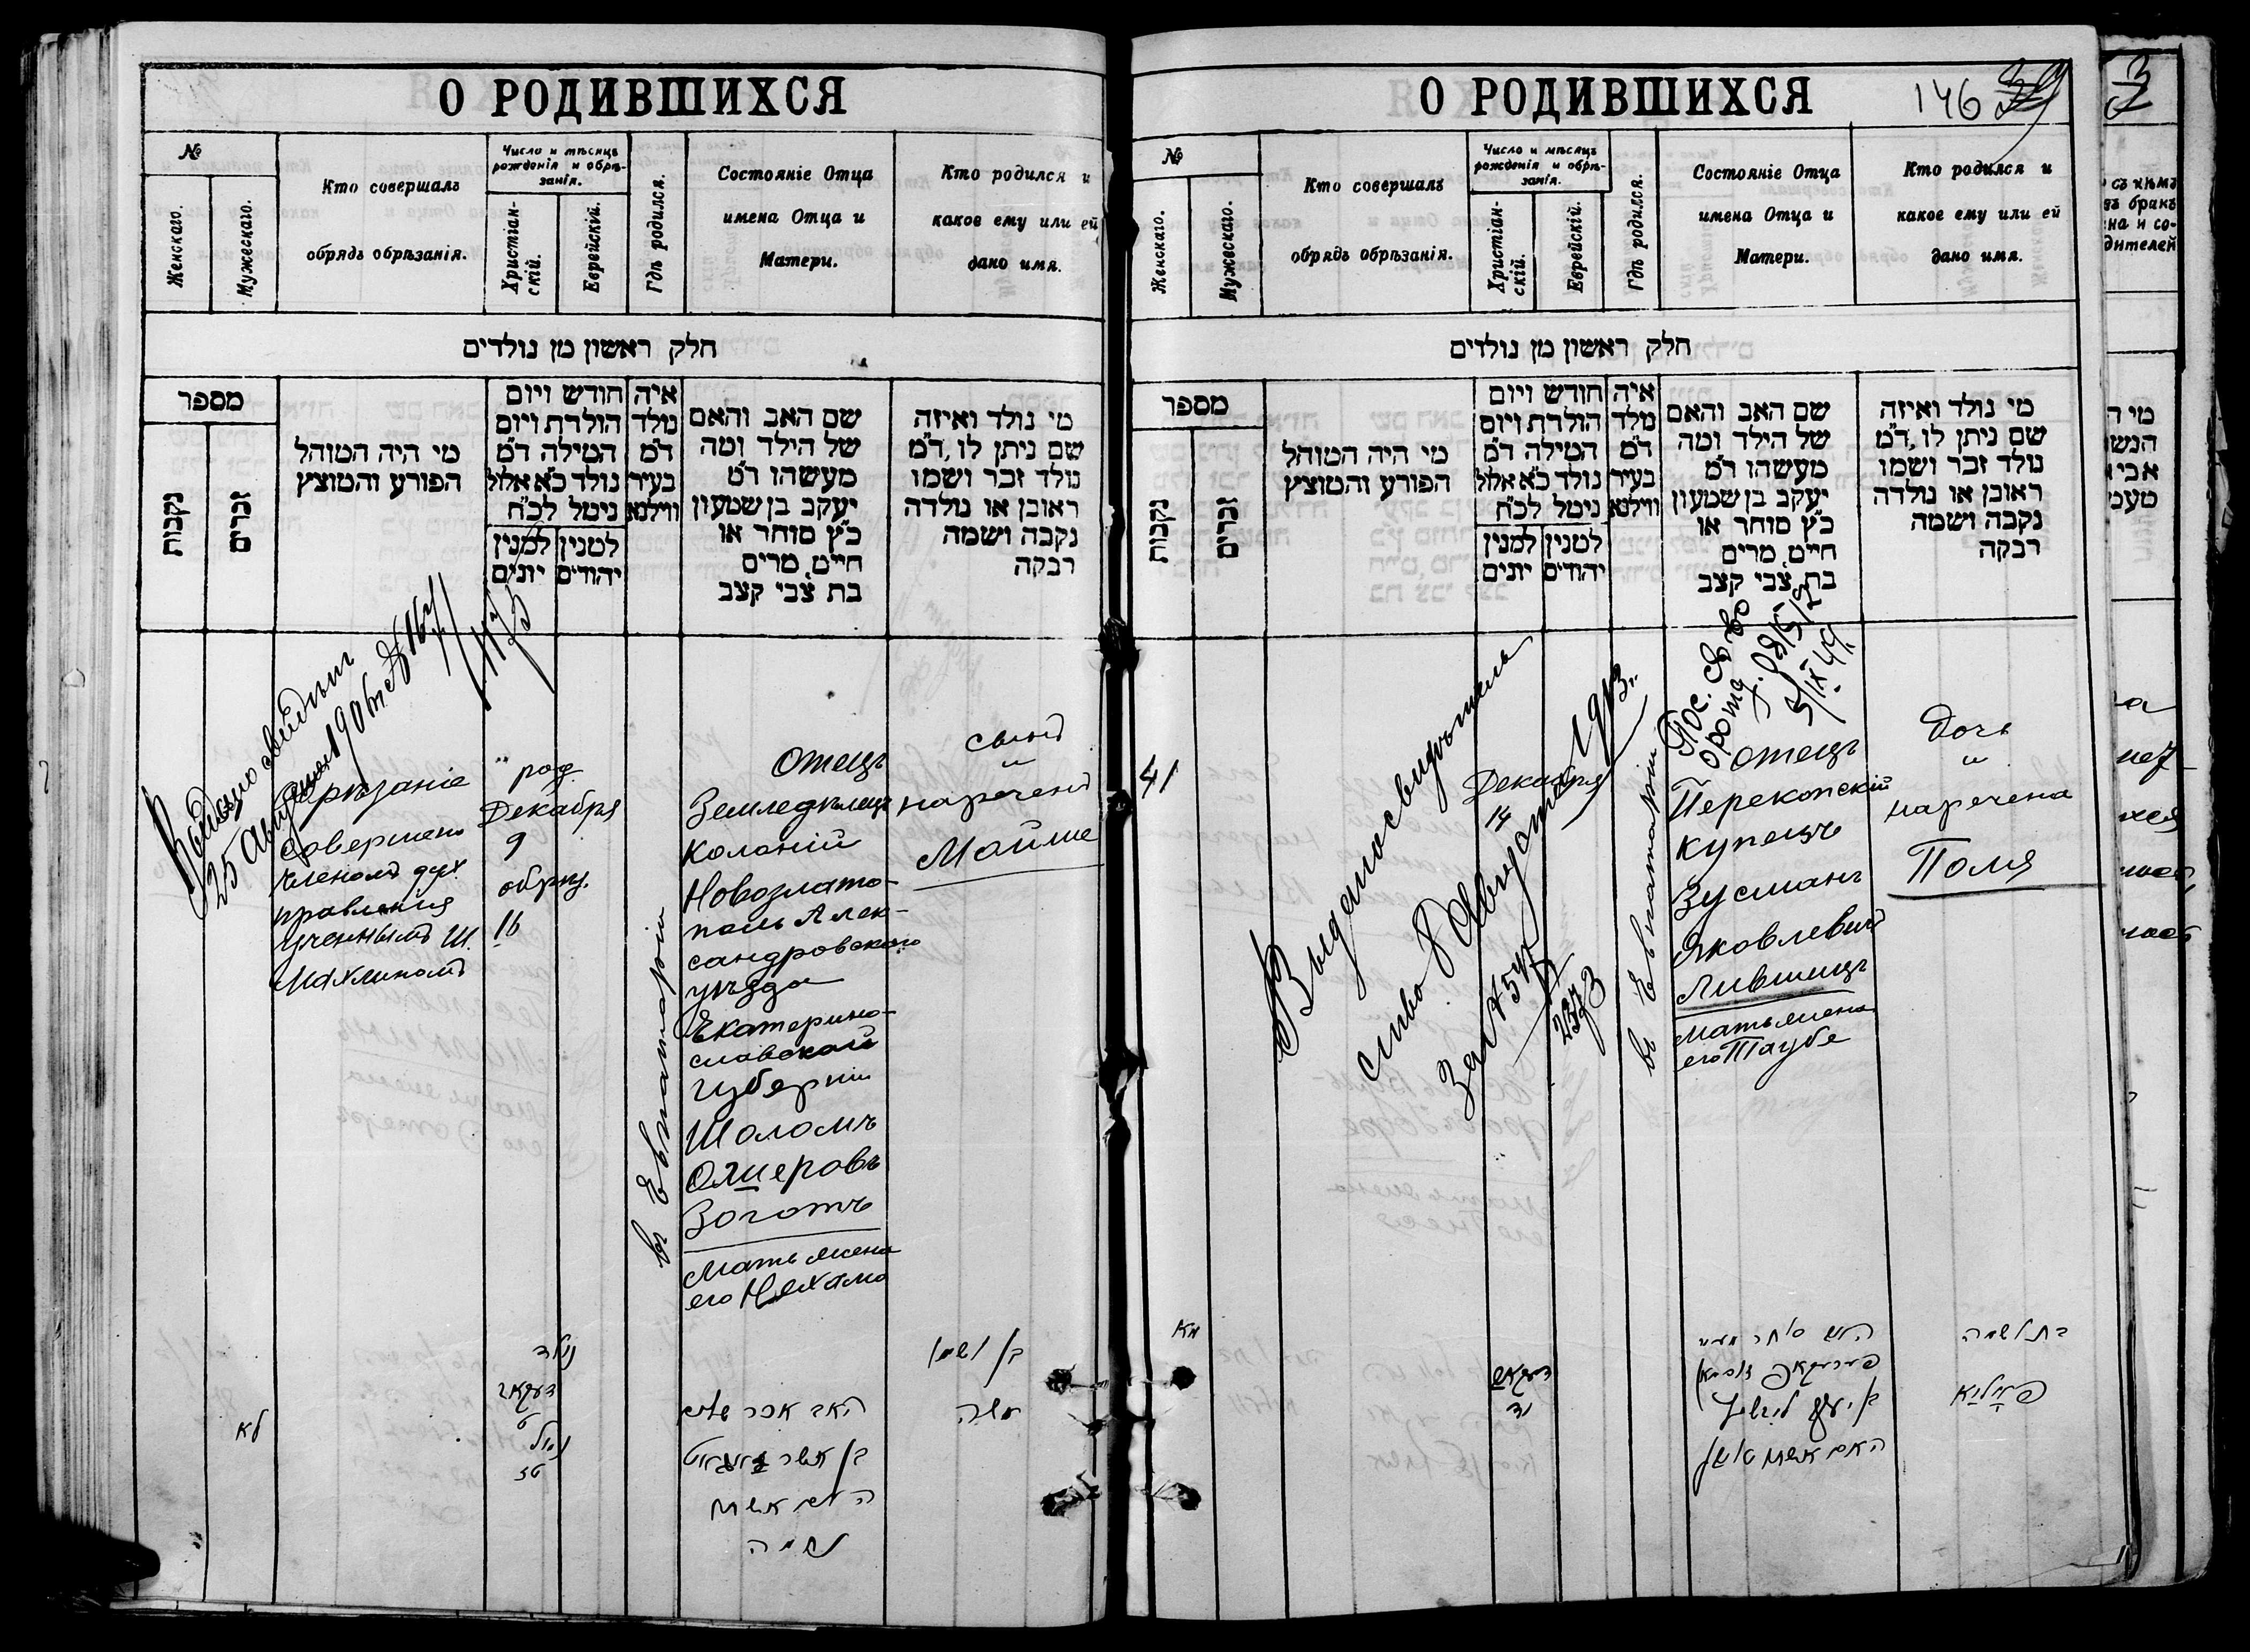 О РОДИВШИХСЯ
№
Женскаго.
Мужескаго.
Кто совершалъ
обрядъ обрѣзанія.
Число и мѣсяцъ
рожденія и обрѣ-
занія.
Христіан-
скій.
Еврейскій.
Гдѣ родился.
Состояніе Отца
имена Отца и
Матери.
Кто родился и
какое ему или ей
дано имя.
חלק ראשון מן נולדים
מספר
נקבות
זכרים
מי היה המוהל
הפורע והמוצץ
חודש ויום
הולדת ויום
המילה ד"מ
נולד כ"א אלול
נימל לכ"ח
למנין
יונים
למנין
יהודים
איה
נולד
ד"מ
בעיר
ווילנא
שם האב והאם
של הילד ומה
מעשהו ד"מ
יעקב בן שמעון
כ"ץ סוחר או
חייט, מרים
בת צבי קצב
מי נולד ואיזה
שם ניתן לו, ד"מ
נולד זכר ושמו
ראובן או נולדה
נקבה ושמה
רבקה
25 Августа 1906 г. № 167
Обрѣзаніе
совершено
членомъ дух.
правленія
ученымъ Ш.
Махлиномъ
род.
Декабря
9
обрѣз.
16
въ Евпаторіи
Отецъ
Земледѣлецъ
колоніи
Новозлато-
поль Алек-
сандровскаго
уѣзда
Екатерино-
славской
губерніи
Шоломъ
Ошеровъ
Зоготъ
мать жена
его Нехама
сынъ
и
нареченъ
Мойше
לא
נולד
דעקאב
ט
נימול
טז
האב אכר שלום
בן אשר
האם אשתו
נחמה
בן ושמו
משה
О РОДИВШИХСЯ
146 39
№
Женскаго.
Мужескаго.
Кто совершалъ
обрядъ обрѣзанія.
Число и мѣсяцъ
рожденія и обрѣ-
занія.
Христіан-
скій.
Еврейскій.
Гдѣ родился.
Состояніе Отца
имена Отца и
Матери.
Кто родился и
какое ему или ей
дано имя.
חלק ראשון מן נולדים
מספר
נקבות
זכרים
מי היה המוהל
הפורע והמוצץ
חודש ויום
הולדת ויום
המילה ד"מ
נולד כ"א אלול
נימל לכ"ח
למנין
יונים
למנין
יהודים
איה
נולד
ד"מ
בעיר
ווילנא
שם האב והאם
של הילד ומה
מעשהו ד"מ
יעקב בן שמעון
כ"ץ סוחר או
חייט, מרים
בת צבי קצב
מי נולד ואיזה
שם ניתן לו, ד"מ
נולד זכר ושמו
ראובן או נולדה
נקבה ושמה
רבקה
41
Выдано свидѣтель
ство 8 Августа 1913 г.
за № 54
Декабря
14
въ Евпаторіи
отецъ
Перекопскій
купецъ
Зусманъ
Яковлевичъ
Лившицъ
мать жена
его Таубе
Дочь
и
наречена
Поля
מא
דעקאב
יד
בן יעקב ליבשיץ
האם אשתו טויבע
בת ושמה
פאליא